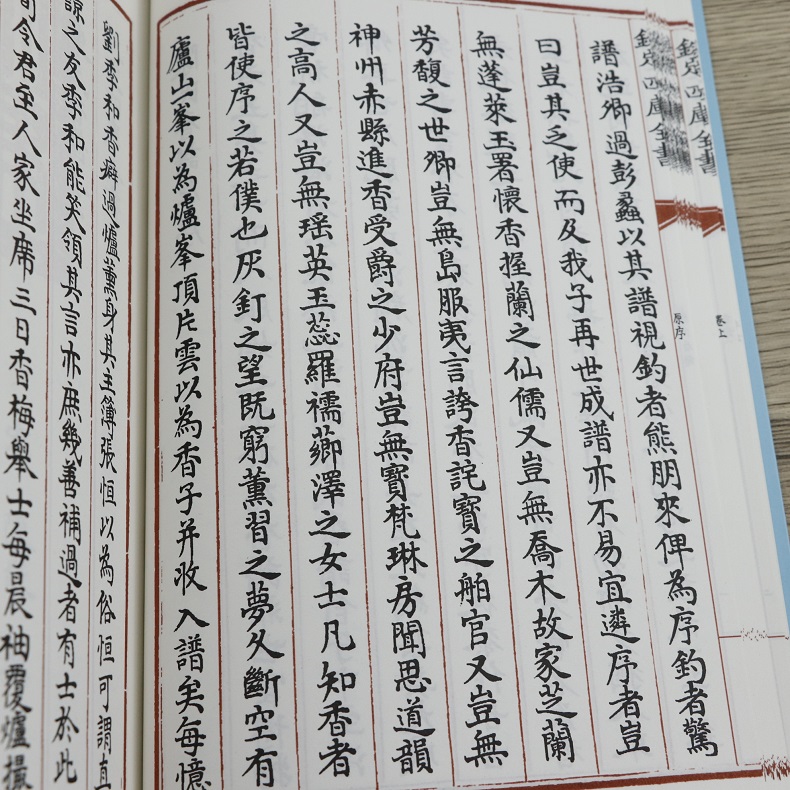 欽定四庫全書
欽定四庫全書
卷上
原序
譜浩卿過彭蠡以其譜視釣者熊朋來俾為序釣者驚
曰豈其乏使而及我子再世成譜亦不易宜遴序者豈
無蓬萊玉署懷香握蘭之仙儒又豈無喬木故家芝蘭
芳馥之世卿豈無島服夷言誇香詫寶之舶官又豈無
神州赤縣進香受爵之少府豈無寶梵琳房聞思道韻
之高人又豈無瑶英玉蕊羅襦薌澤之女士凡知香者
皆使序之若僕也灰釘之望既窮薰習之夢久斷空有
廬山一峯以為爐峯頂片雲以為香子并收入譜矣每憶
劉季和香癖過爐薰身其主簿張恒以為俗恒可謂直
諒之友季和能笑領其言亦庶幾善補過者有士於此
荀令君至人家坐席三日香梅舉士每晨袖覆爐撮